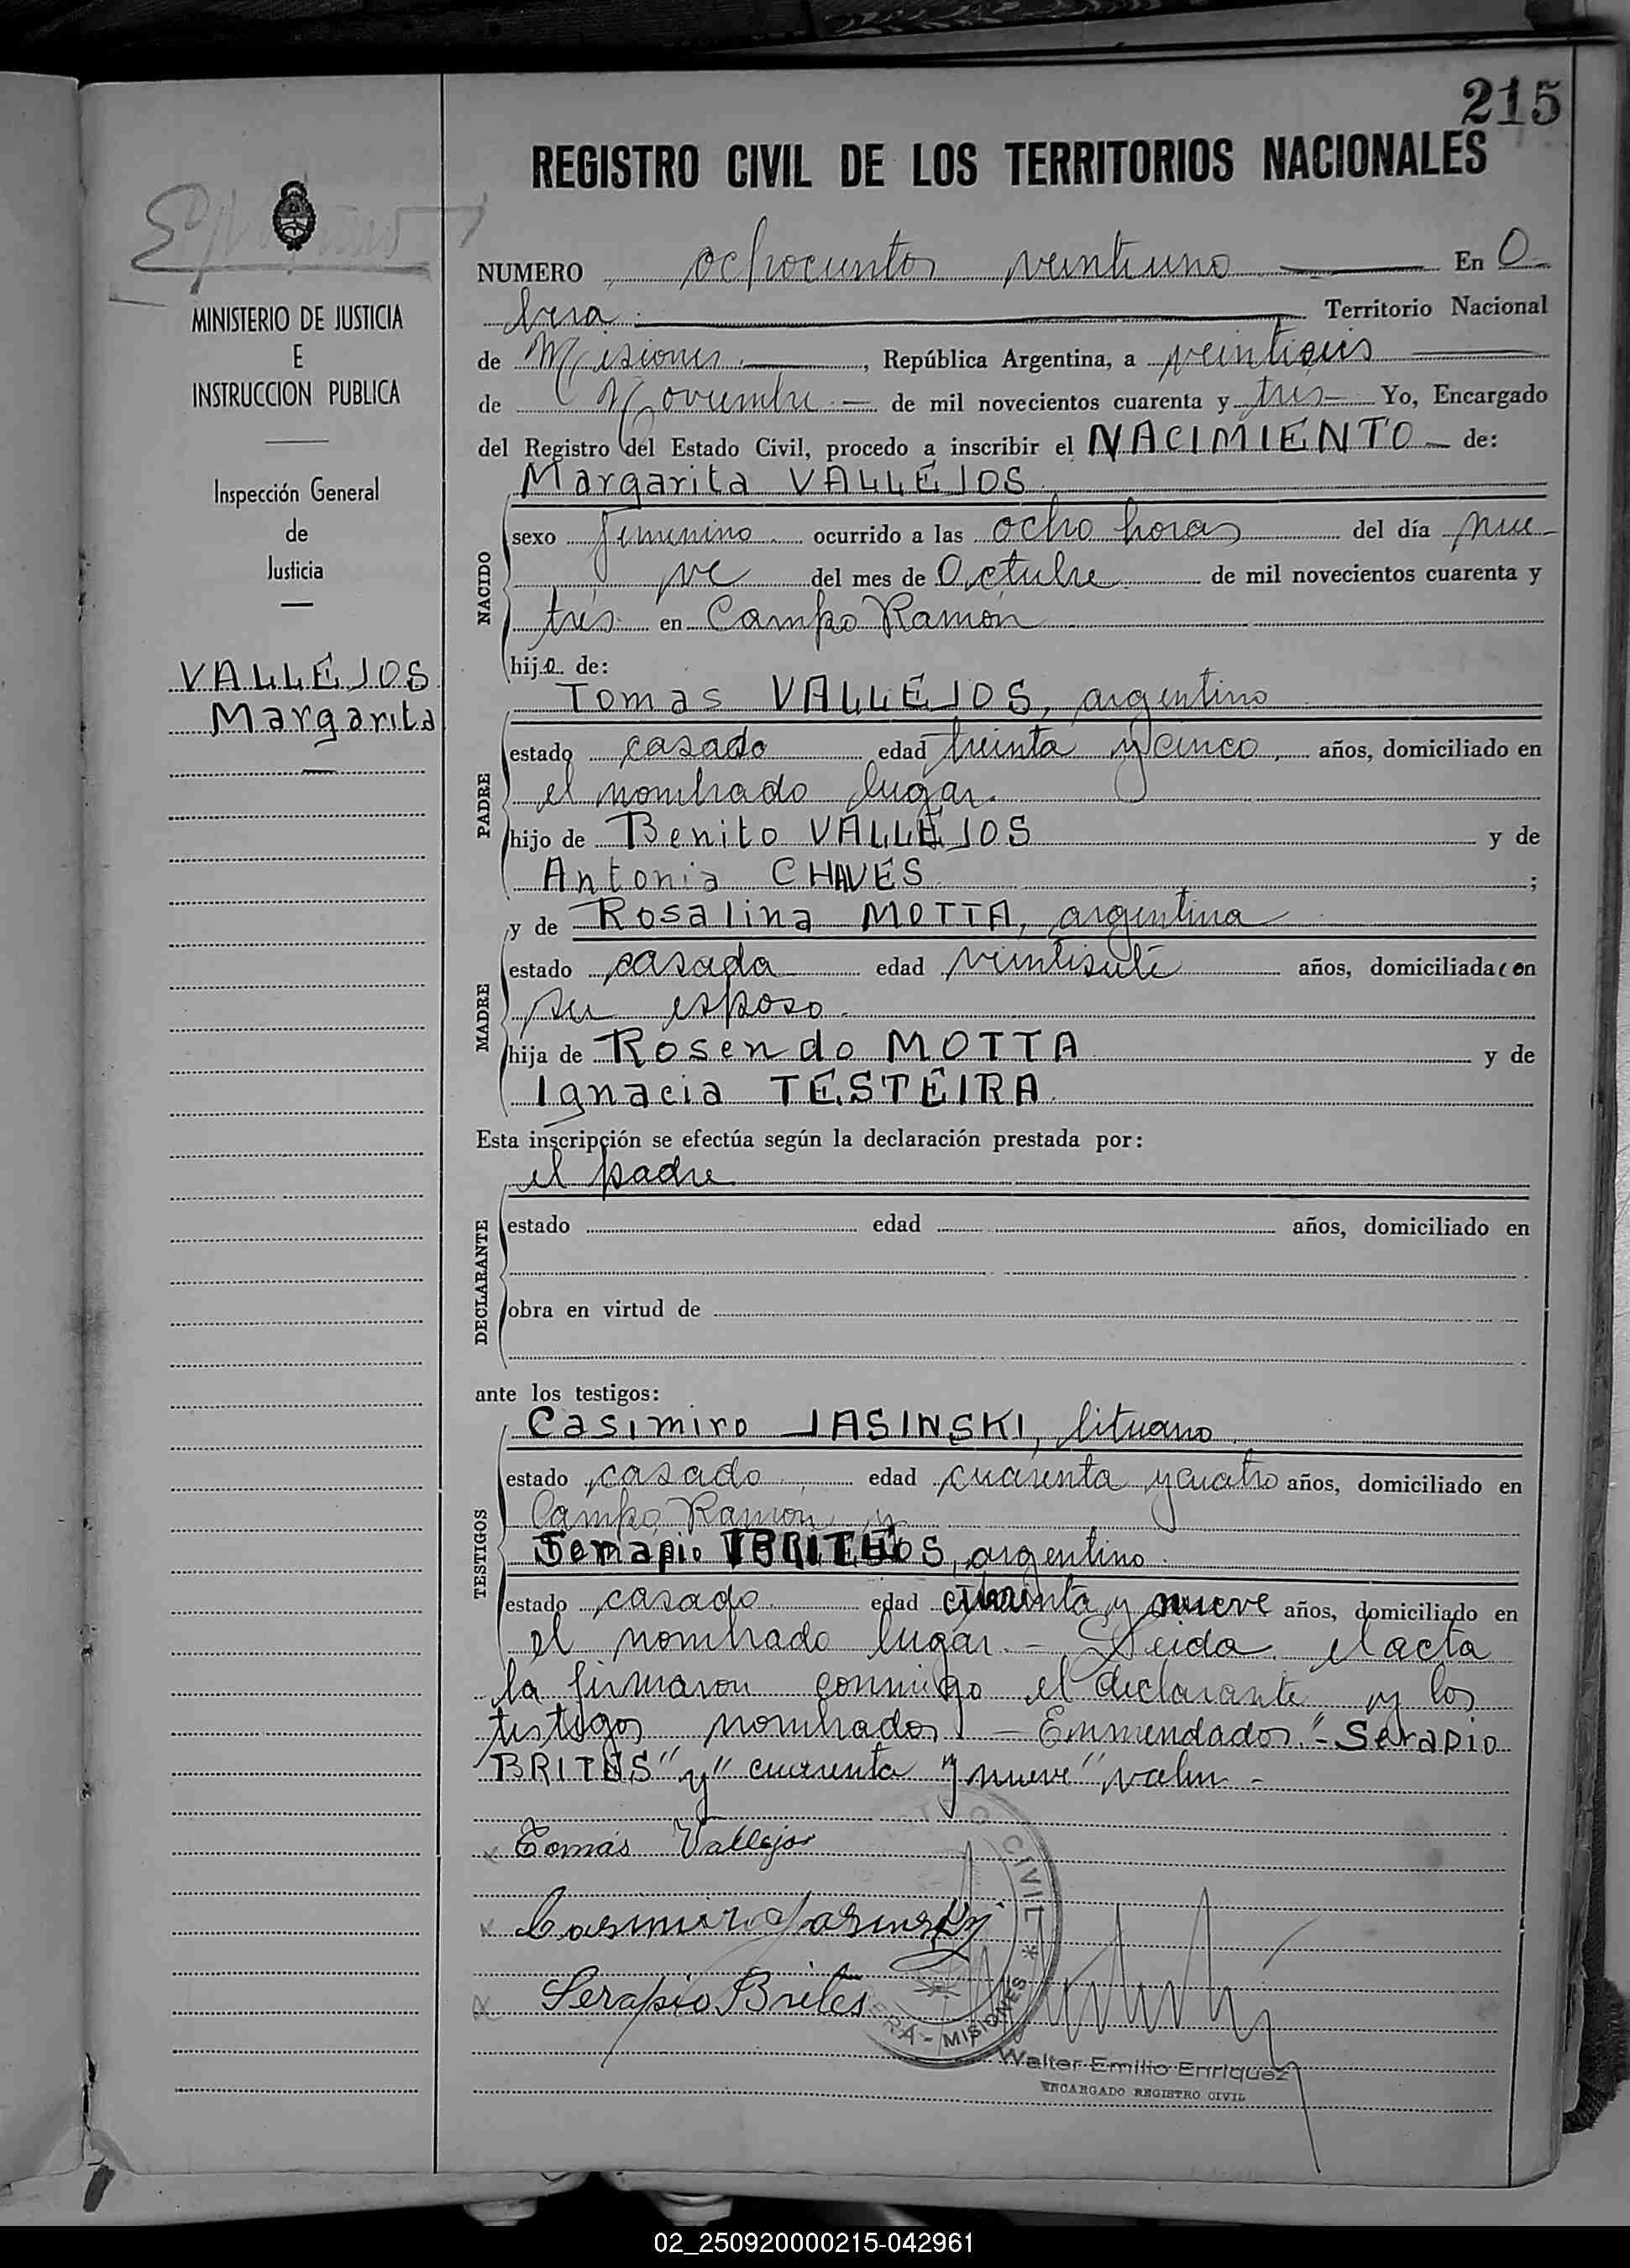 215
REGISTRO CIVIL DE LOS TERRITORIOS NACIONALES
MINISTERIO DE JUSTICIA
E
INSTRUCCION PUBLICA
Inspección General
de
Justicia
VALLEJOS
Margarita
NUMERO ochocientos veintiuno En O
bera Territorio Nacional
de Misiones, República Argentina, a veintiseis
de Noviembre de mil novecientos cuarenta y tres Yo, Encargado
del Registro del Estado Civil, procedo a inscribir el NACIMIENTO de:
Margarita VALLEJOS
NACIDO
sexo femenino ocurrido a las ocho horas del día nue-
ve del mes de Octubre de mil novecientos cuarenta y
tres en Campo Ramón
hija de:
Tomas VALLEJOS, argentino
PADRE
estado casado edad treinta y cinco años, domiciliado en
el nombrado lugar.
hijo de Benito VALLEJOS y de
Antonia CHAVES ;
y de Rosalina MOTTA, argentina
MADRE
estado casada edad veintisiete años, domiciliada con
su esposo.
hija de Rosendo MOTTA y de
Ignacia TESTEIRA.
Esta inscripción se efectúa según la declaración prestada por:
el padre
DECLARANTE
estado edad años, domiciliado en
obra en virtud de
ante los testigos:
Casimiro JASINSKI, lituano
TESTIGOS
estado casado edad cuarenta y cuatro años, domiciliado en
Campo Ramon y
Serapio BRITES, argentino.
estado casado edad cuarenta y nueve años, domiciliado en
el nombrado lugar.- Leida el acta
la firmaron conmigo el declarante y los
testigos nombrados.- Enmendados "-Serapio
BRITES" y "cuarenta y nueve" valen.-
Tomás Vallejos
Casimiro Jasinski
Serapio Brites
CIVIL * MISIONES
Walter Emilio Enriquez
ENCARGADO REGISTRO CIVIL
02_250920000215-042961